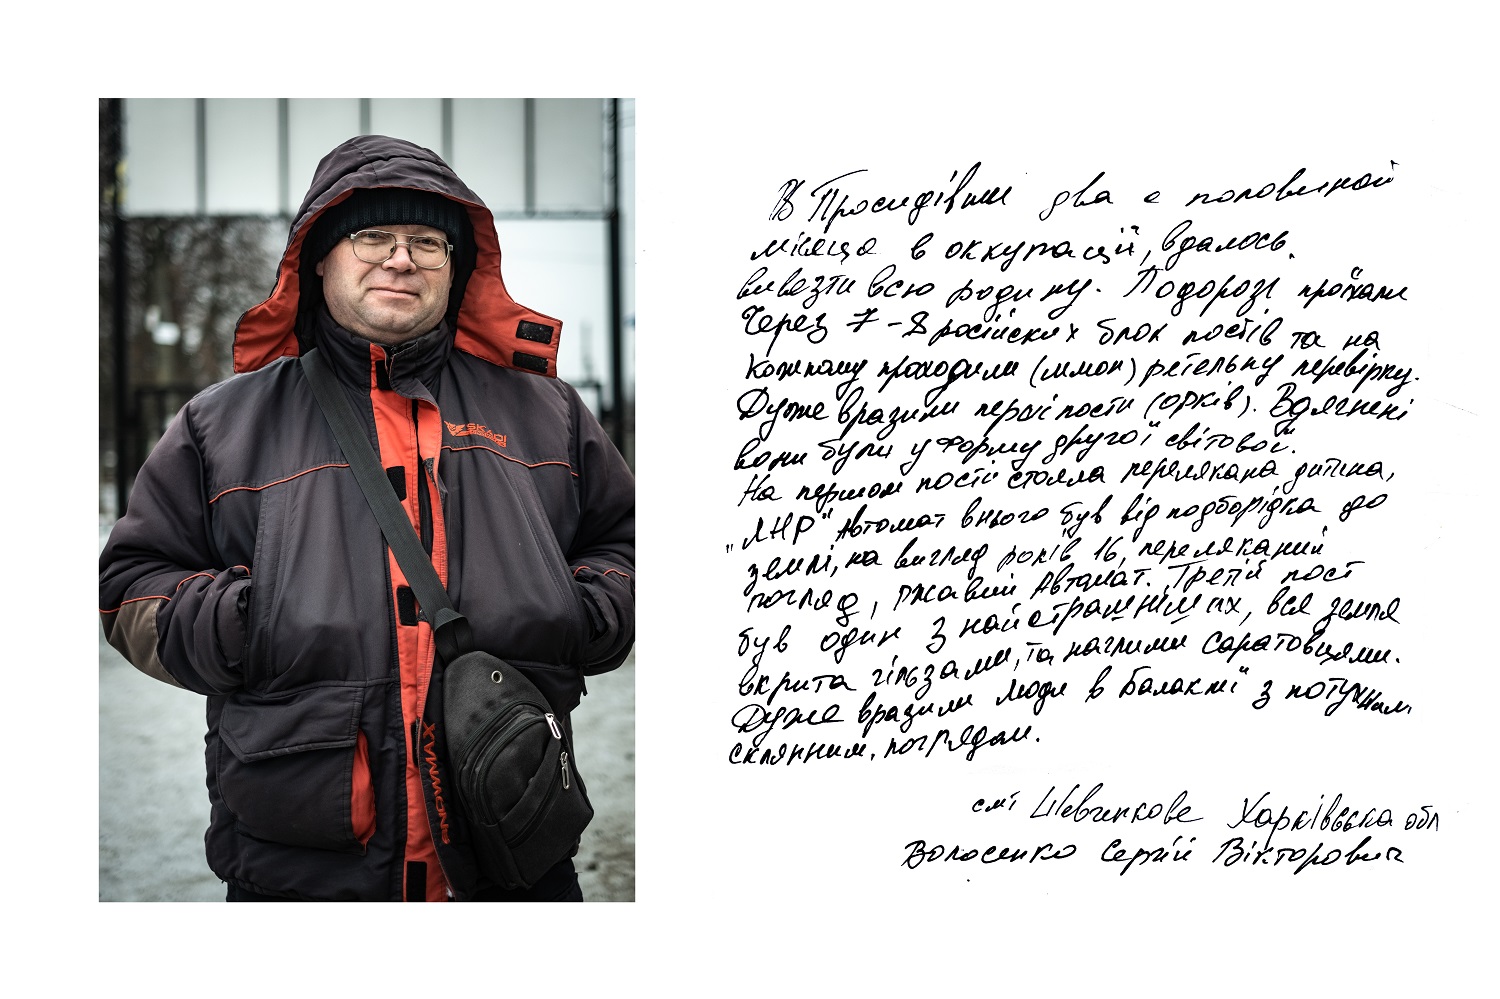 SKADI
SNOWWAX
Просидівши два с половиной
місяца в оккупації, вдалось.
вивезти всю родину. Подорозі проїхали
Через 7-8 російских блок постів та на
кожному проходили (ммон) ретельну перевірку.
Дуже вразили перші пости (орків). Вдягнені
вони були у форму другої світової.
На першом пості стояла перелякана дитина,
"ЛНР" Автомат внього був від подборідка до
землі, на вигляд років 16, переляканий
погляд, ржавий Автомат. Третій пост
був один з найстрашніших, вся земля
вкрита гільзами, та наглими саратовцями.
Дуже вразили люди в Балаклії з потухшим
склянним. поглядом.
смт Шевченкове Харківська обл
Волосенко Сергій Вікторович